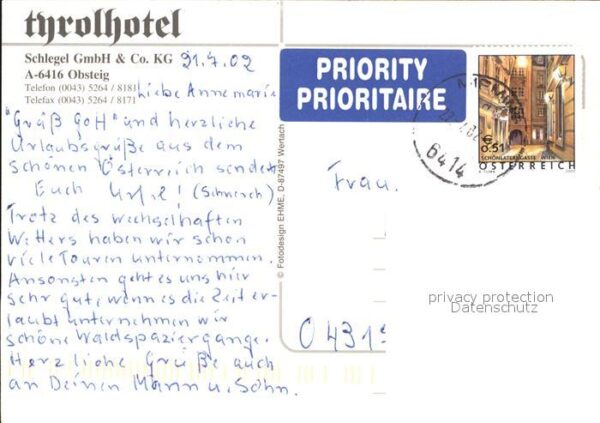 tyrolhotel
Schlegel GmbH & Co. KG
A-6416 Obsteig
Telefon (0043) 5264 / 8181
Telefax (0043) 5264 / 8171
21.7.02
Liebe Annemarie
"Grüß Gott" und herzliche
Urlaubsgrüße aus dem
schönen Österreich sendet
Euch Ursel! (Schnorch)
Trotz des wechselhaften
Wetters haben wir schon
viele Touren unternommen.
Ansonsten geht es uns hier
sehr gut, wenn es die Zeit er-
laubt unternehmen wir
schöne Waldspaziergänge.
Herzliche Grüße auch
an Deinen Mann u. Sohn.
© Fotodesign EHME, D-87497 Wertach
PRIORITY
PRIORITAIRE
6414
€ 0,51
SCHÖNLATERNGASSE, WIEN
ÖSTERREICH
Frau
0431
privacy protection
Datenschutz